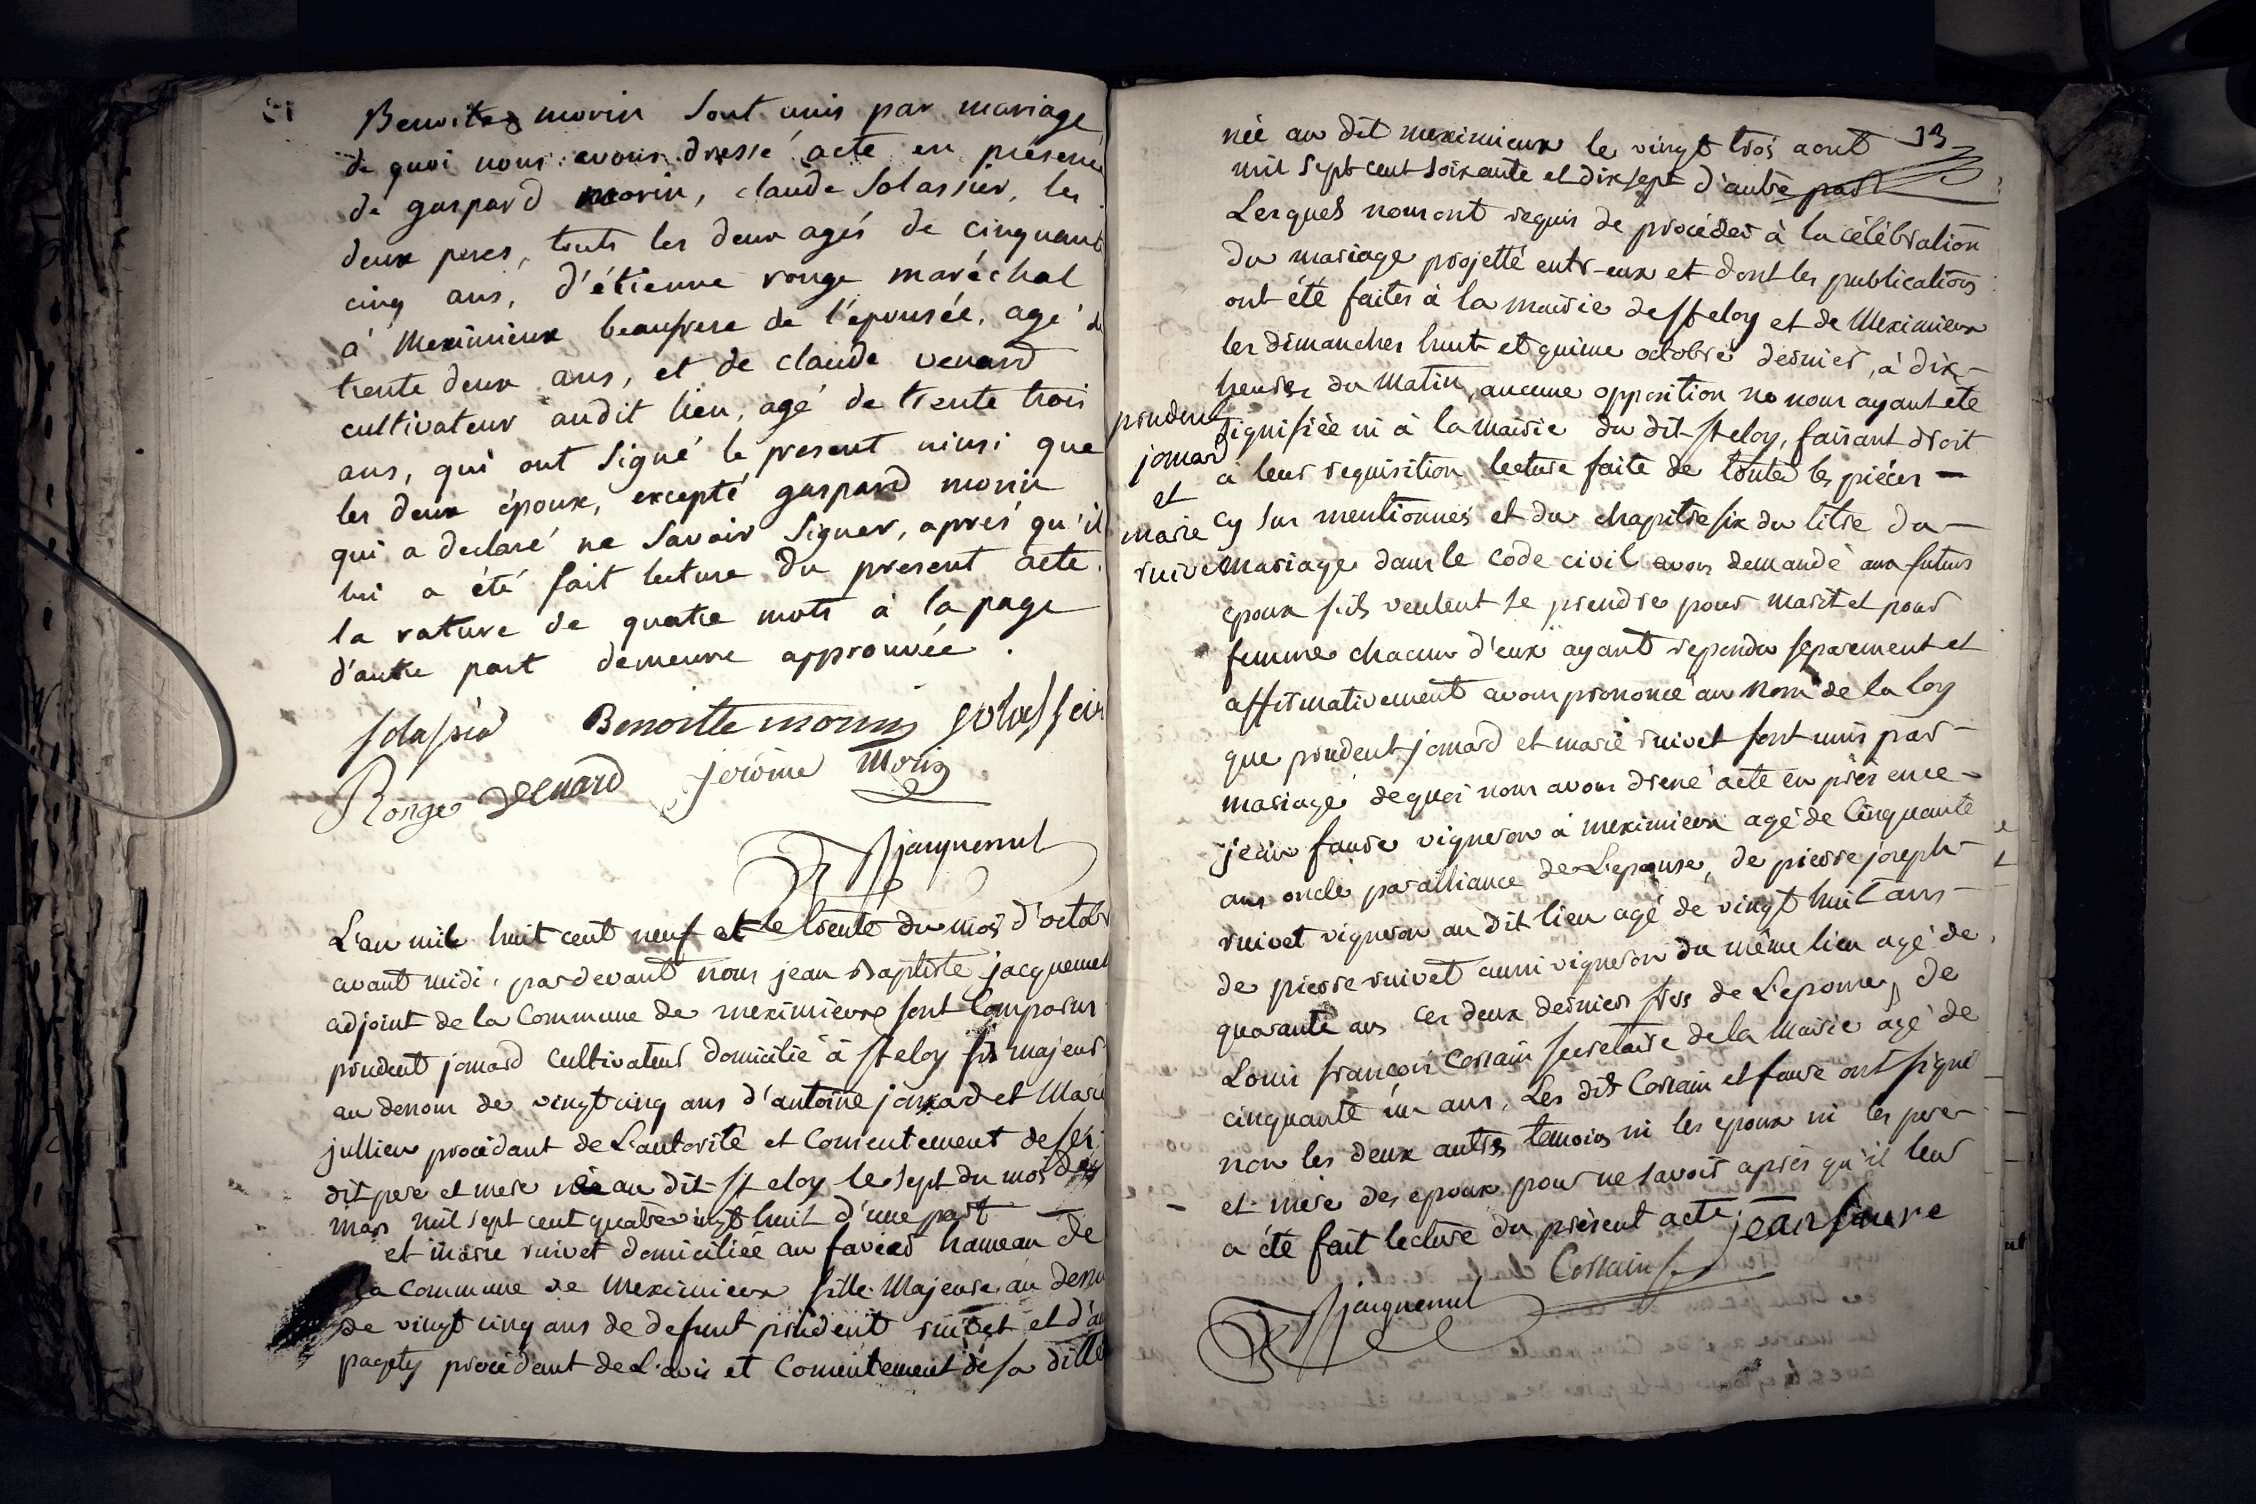 Benoite morin sont unis par mariage
de quoi nous avons dressé acte en présence
de gaspard morin, claude solassier, les
deux peres, touts les deux agés de cinquante
cinq ans, d'étienne ronge maréchal
à Meximieux beaufrere de l'épousée, agé de
trente deux ans, et de claude venard
cultivateur audit lieu, agé de trente trois
ans, qui ont signé le present ainsi que
les deux époux, excepté gaspard morin
qui a declaré ne savoir signer, après qu'il
lui a été fait lecture du present acte.
la rature de quatre mots à la page
d'autre part demeure approuvée.
Benoitte morin
Ronge venard jerôme Morin
jacquemet
L'an mil huit cent neuf et le trente du mois d'octobr
avant midi, pardevant nous jean Baptiste jacquemet
adjoint de la Commune de meximieux sont Comparus
prudent jomard cultivateur domicilié à st eloy fils majeur
au dessus de vingt cinq ans d'antoine jomard et Marie
jullien procédant de L'autorité et Consentement de ses
dit pere et mere né au dit st eloy le sept du mois de
mars mil sept cent quatre vingt huit d'une part
et marie ruivet domiciliée au hameau de
la Commune de Meximieux fille Majeure au dessu
de vingt cinq ans de defunt prudent ruivet et d'
procédant de L'avis et Consentement de sa ditte
13
née au dit meximieux le vingt trois aout
mil sept cent soixante et dix sept d'autre part
Lesquels nous ont requis de procéder à la célébration
du mariage projetté entr-eux et dont les publications
ont été faites à la mairie de st eloy et de Meximieux
les dimanches huit et quinze octobre dernier, à dix
heures du matin, aucune opposition ne nous ayant été
signifiée ni à la mairie du dit st eloy, faisant droit
à leur requisition lecture faite de toutes les pièces
cy sus mentionnés et du chapitre six du titre du
mariage dans le code civil avons demandé aux futurs
epoux s'ils veulent se prendre pour mari et pour
femme chacun d'eux ayant repondu separement et
affirmativement avons prononcé au nom de la loy
que prudent jomard et marie ruivet sont unis par
mariage de quoi nous avons dressé acte en présence
jean faure vigneron à meximieux agé de Cinquante
ans oncle par alliance de L'epouse, de pierre joseph
ruivet vigneron au dit lieu agé de vingt huit ans
de pierre ruivet aussi vigneron du même lieu agé de
quarante ans ces deux derniers freres de L'epouse, de
Louis françois Cossain secretaire de la Mairie agé de
cinquante un ans, Les dits Cossain et faure ont signé
non les deux autres temoins ni les epoux ni les pere
et mere des epoux pour ne savoir après qu'il leur
a été fait lecture du présent acte. jean faure
Cossain
jacquemet
prudent
jomard
et
marie
ruivet